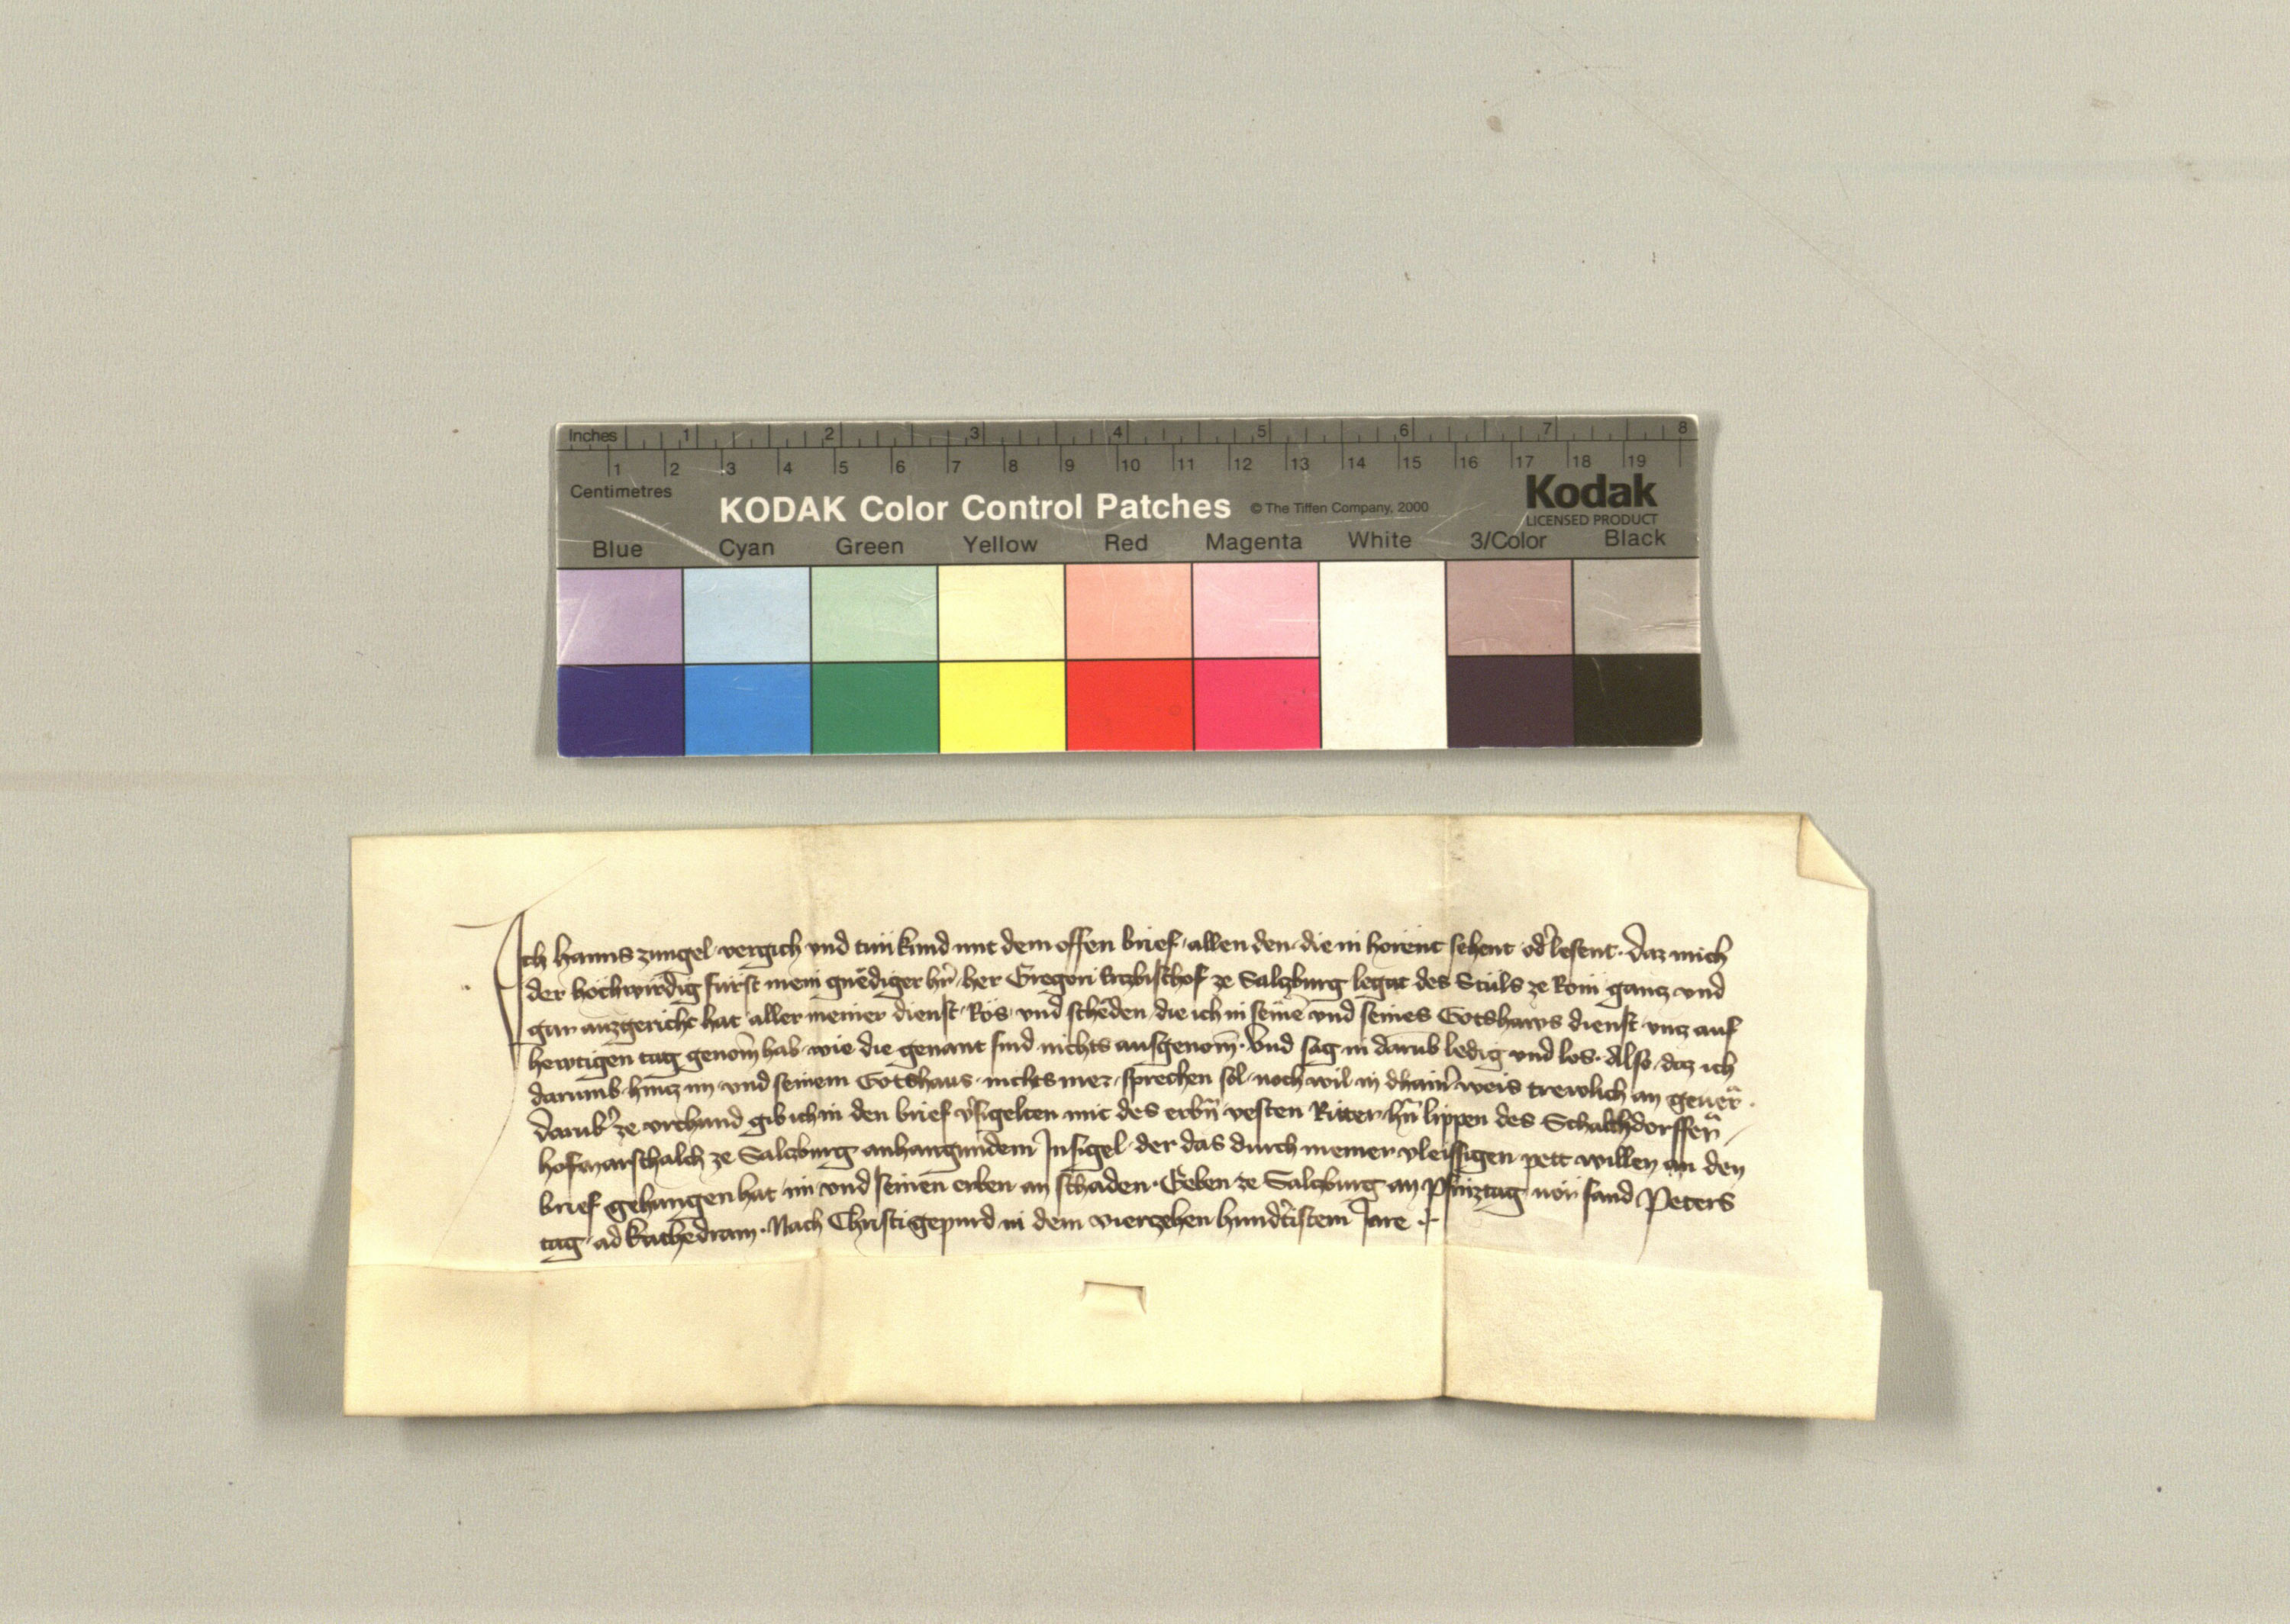 Inches 1 2 3 4 5 6 7 8
1 2 3 4 5 6 7 8 9 10 11 12 13 14 15 16 17 18 19
Centimetres
KODAK Color Control Patches © The Tiffen Company, 2000
Kodak
LICENSED PRODUCT
Blue Cyan Green Yellow Red Magenta White 3/Color Black
Ich Hanns zungel vergich vnd tun kund mit dem offen brief allen den die in horent sehent od̉ lesent. Daz mich
der hochwirdig fürst mein gnediger hr̄ her Gregori Ertzbischof ze Salczburg legat des Stuls ze Rom gancz vnd
gar auzgericht hat aller meiner dienst Ros vnd scheden die ich in seinē vnd seines Gotshaws dienst vncz auf
hewtigen tag genom̄ hab wie die genant sind nichts ausgenom̄. Vnd sag in darub ledig vnd los. Also daz ich
darumb hincz im vnd seinem Gotshaus nichts mer sprechen sol noch wil in dhain̉ weis trewlich an geuer̄.
Darub̉ ze vrchund gib ich in den brief v̉sigelten mit des erbn̄ vesten Ritter hn̄ lippen des Schalchdorffer̄
hofmarschalch ze Salczburg anhangundem Insigel der das durch meiner vleissigen pett willen an den
brief gehangen hat im vnd seinen erben an schaden. Geben ze Salczburg an Phincztag vor sand Peters
tag ad kathedram. Nach Christi gepurd in dem vierczehen hundt̉istem Jare